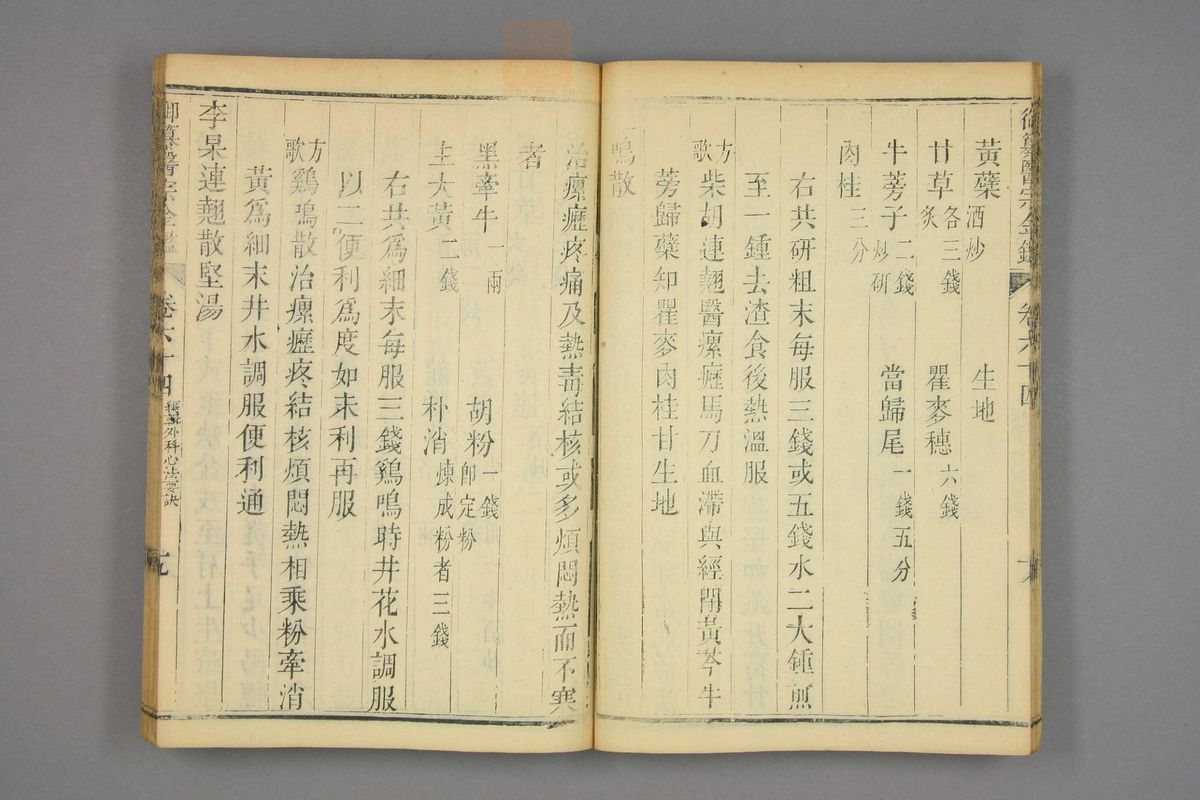 御纂醫宗金鑑 卷六十四
黃蘗酒炒 生地
甘草炙各三錢 瞿麥穗六錢
牛蒡子炒研二錢 當歸尾一錢五分
肉桂三分
右共研粗末每服三錢或五錢水二大鍾煎
至一鍾去渣食後熱溫服
方歌柴胡連翹醫瘰癧馬刀血滯與經閉黃芩牛
蒡歸蘗知瞿麥肉桂甘生地
鳴散
治瘰癧疼痛及熱毒結核或多煩悶熱而不寒
者
黑牽牛一兩 胡粉一錢即定粉
土大黃二錢 朴消煉成粉者三錢
右共為細末每服三錢鷄鳴時井花水調服
以二便利為度如未利再服
方歌鷄鳴散治瘰癧疼結核煩悶熱相乘粉牽消
黃為細末井水調服便利通
李杲連翹散堅湯
御纂醫宗金鑑 卷六十四 編輯外科心法要訣 九